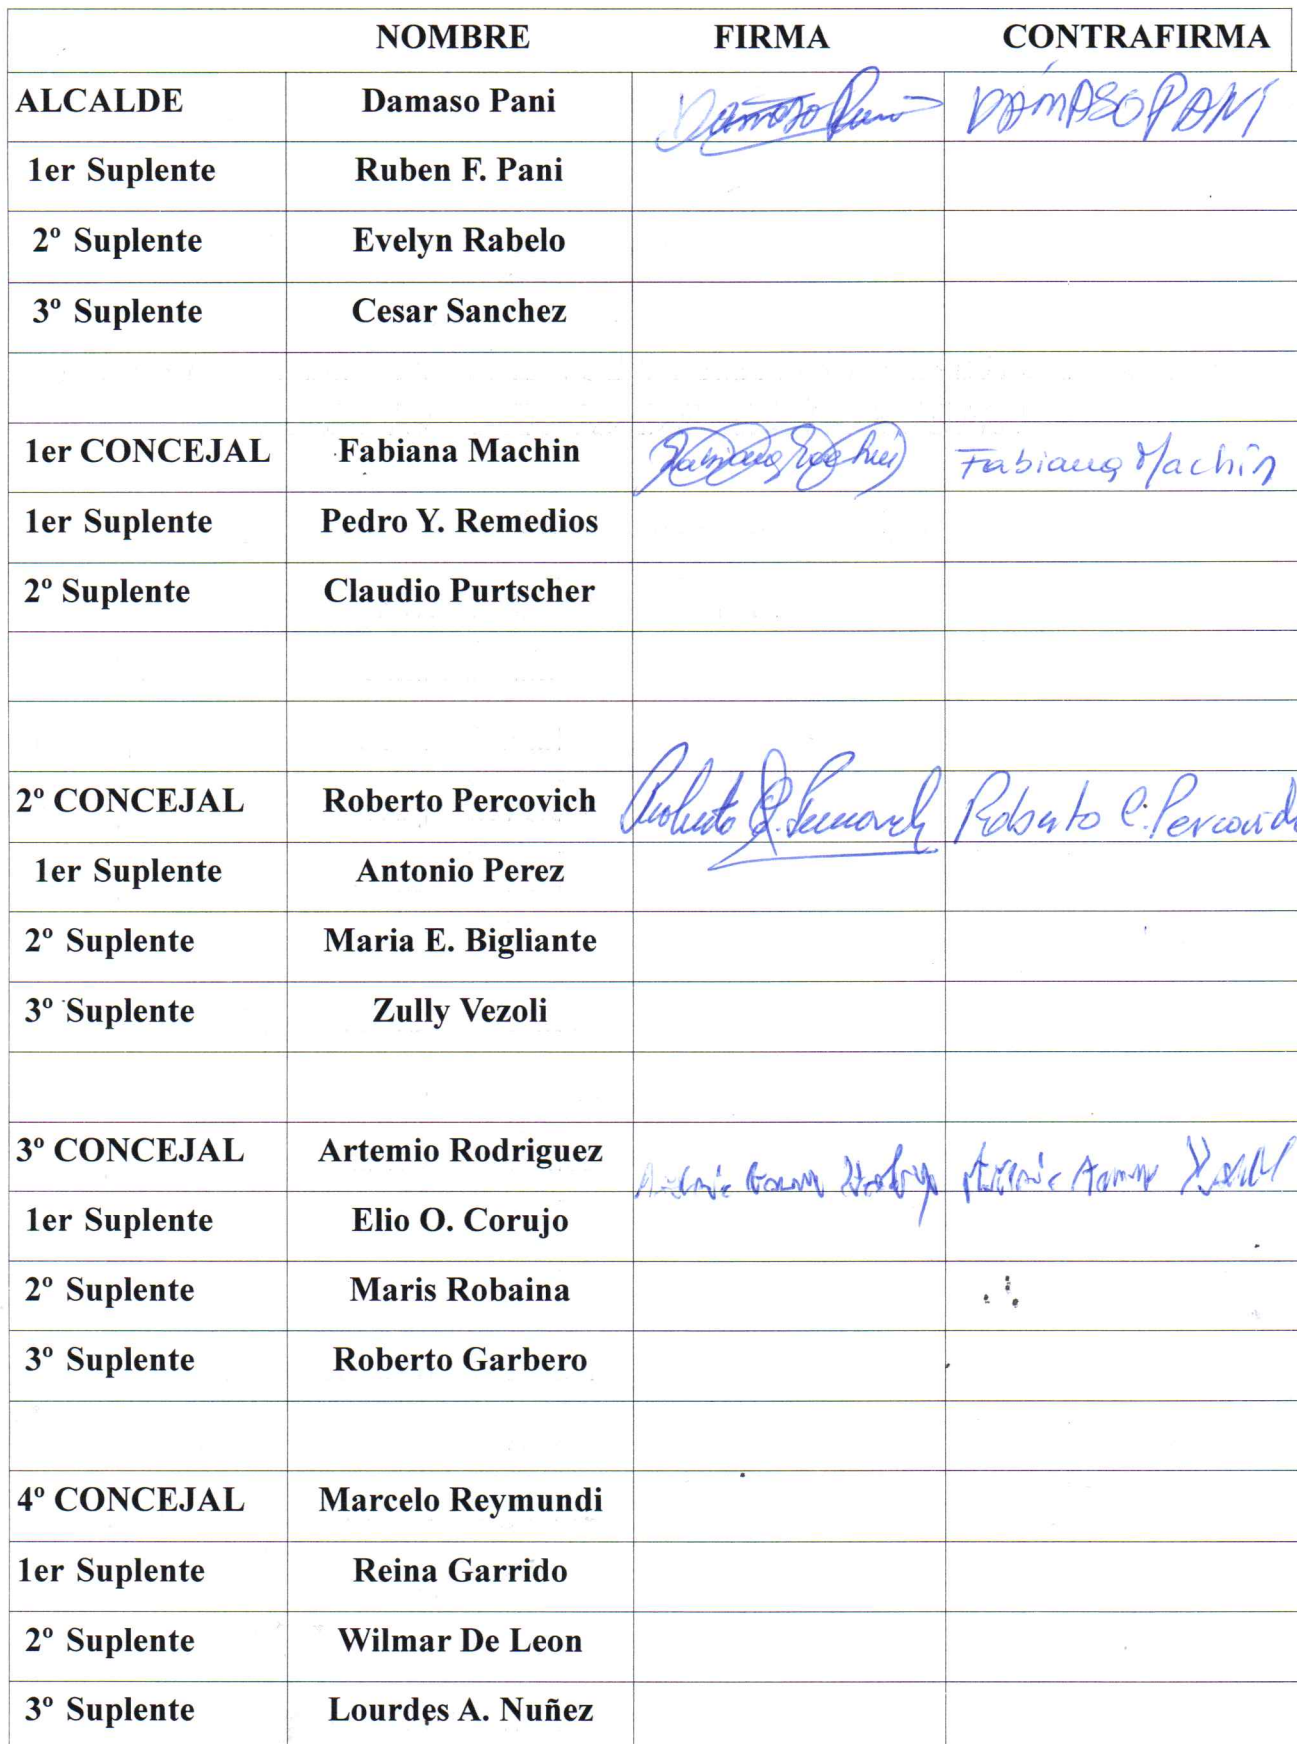 NOMBRE FIRMA CONTRAFIRMA
ALCALDE Damaso Pani Damaso Pani DAMASO PANI
1er Suplente Ruben F. Pani
2º Suplente Evelyn Rabelo
3º Suplente Cesar Sanchez
1er CONCEJAL Fabiana Machin Fabiana Machin Fabiana Machin
1er Suplente Pedro Y. Remedios
2º Suplente Claudio Purtscher
2º CONCEJAL Roberto Percovich Roberto C. Percovich Roberto C. Percovich
1er Suplente Antonio Perez
2º Suplente Maria E. Bigliante
3º Suplente Zully Vezoli
3º CONCEJAL Artemio Rodriguez
1er Suplente Elio O. Corujo
2º Suplente Maris Robaina
3º Suplente Roberto Garbero
4º CONCEJAL Marcelo Reymundi
1er Suplente Reina Garrido
2º Suplente Wilmar De Leon
3º Suplente Lourdes A. Nuñez